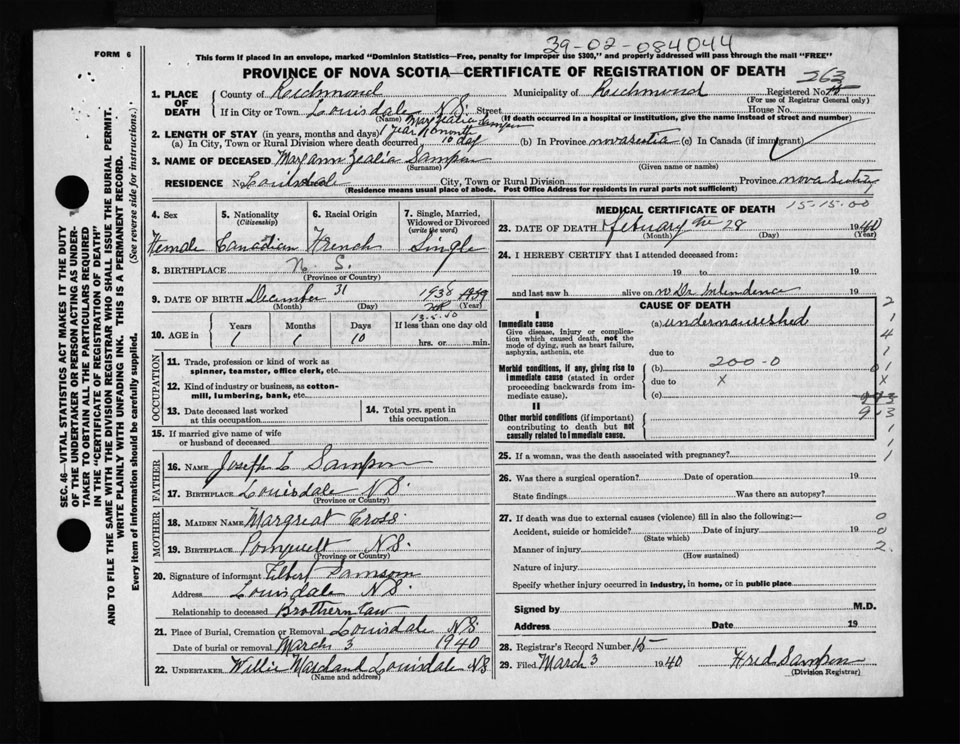 39-02-084044
FORM 6
This form if placed in an envelope, marked "Dominion Statistics—Free, penalty for improper use $300," and properly addressed will pass through the mail "FREE"
PROVINCE OF NOVA SCOTIA—CERTIFICATE OF REGISTRATION OF DEATH
263
1. PLACE OF DEATH
County of Richmond Municipality of Richmond Registered No. 15
(For use of Registrar General only)
If in City or Town Louisdale N S. Street House No.
(Name) (If death occurred in a hospital or institution, give the name instead of street and number)
Mary Zealia Sampson
2. LENGTH OF STAY (in years, months and days) 1 year 1 month
(a) In City, Town or Rural Division where death occurred 10 day (b) In Province novascotia (c) In Canada (if immigrant)
3. NAME OF DECEASED Maryann Zealia Sampson
(Surname) (Given name or names)
RESIDENCE No. Louisdale City, Town or Rural Division Province nova Scotia
(Residence means usual place of abode. Post Office Address for residents in rural parts not sufficient)
4. Sex
Female
5. Nationality
(Citizenship)
Canadian
6. Racial Origin
French
7. Single, Married, Widowed or Divorced
(write the word)
Single
8. BIRTHPLACE N. S.
(Province or Country)
9. DATE OF BIRTH December 31 1938 1939
(Month) (Day) (Year)
10. AGE in
Years 1
Months 1
Days 10
If less than one day old
hrs. or min.
OCCUPATION
11. Trade, profession or kind of work as spinner, teamster, office clerk, etc.
12. Kind of industry or business, as cotton-mill, lumbering, bank, etc.
13. Date deceased last worked at this occupation
14. Total yrs. spent in this occupation
15. If married give name of wife or husband of deceased
FATHER
16. NAME Joseph L Sampson
17. BIRTHPLACE Louisdale N S.
(Province or Country)
MOTHER
18. MAIDEN NAME Margreat Cross
19. BIRTHPLACE Pomquet N S.
(Province or Country)
20. Signature of informant Filbert Samson
Address Louisdale N S.
Relationship to deceased Brothern Law
21. Place of Burial, Cremation or Removal Louisdale N S.
Date of burial or removal March 3 1940
22. UNDERTAKER Willie Marchand Louisdale N S
(Name and address)
MEDICAL CERTIFICATE OF DEATH 15-15-00
23. DATE OF DEATH Febuary the 28 1940
(Month) (Day) (Year)
24. I HEREBY CERTIFY that I attended deceased from:
19 to 19
and last saw h alive on no Dr intendence 19
CAUSE OF DEATH
I
Immediate cause
Give disease, injury or complication which caused death, not the mode of dying, such as heart failure, asphyxia, asthenia, etc
(a) undernourished
due to
Morbid conditions, if any, giving rise to immediate cause (stated in order proceeding backwards from immediate cause).
(b) 200-0
due to x
(c)
II
Other morbid conditions (if important) contributing to death but not causally related to immediate cause.
2
1
4
1
0 1
x
9-3
1
1
25. If a woman, was the death associated with pregnancy?
26. Was there a surgical operation? Date of operation 19
State findings Was there an autopsy?
27. If death was due to external causes (violence) fill in also the following:—
Accident, suicide or homicide? Date of injury 19
(State which)
Manner of injury
(How sustained)
0
0
2.
Nature of injury
Specify whether injury occurred in industry, in home, or in public place
Signed by M.D.
Address Date 19
28. Registrar's Record Number 15
29. Filed March 3 1940 Fred Sampson
(Division Registrar)
SEC. 46—VITAL STATISTICS ACT MAKES IT THE DUTY
OF THE UNDERTAKER OR PERSON ACTING AS UNDER-
TAKER TO OBTAIN ALL THE PARTICULARS REQUIRED
IN THE "CERTIFICATE OF REGISTRATION OF DEATH"
AND TO FILE THE SAME WITH THE DIVISION REGISTRAR WHO SHALL ISSUE THE BURIAL PERMIT.
WRITE PLAINLY WITH UNFADING INK. THIS IS A PERMANENT RECORD.
Every item of information should be carefully supplied. (See reverse side for instructions.)